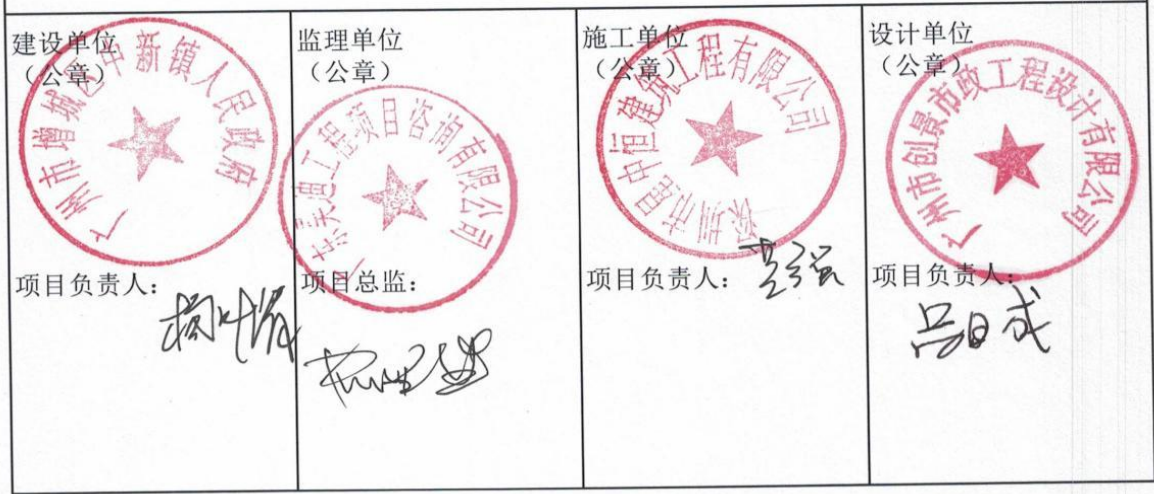 建设单位
（公章）
广州市增城区中新镇人民政府
项目负责人：
监理单位
（公章）
工程项目咨询有限公司
项目总监：
施工单位
（公章）
深圳市昆中恒建筑工程有限公司
项目负责人：
设计单位
（公章）
广州市创景市政工程设计有限公司
项目负责人：
吕日成